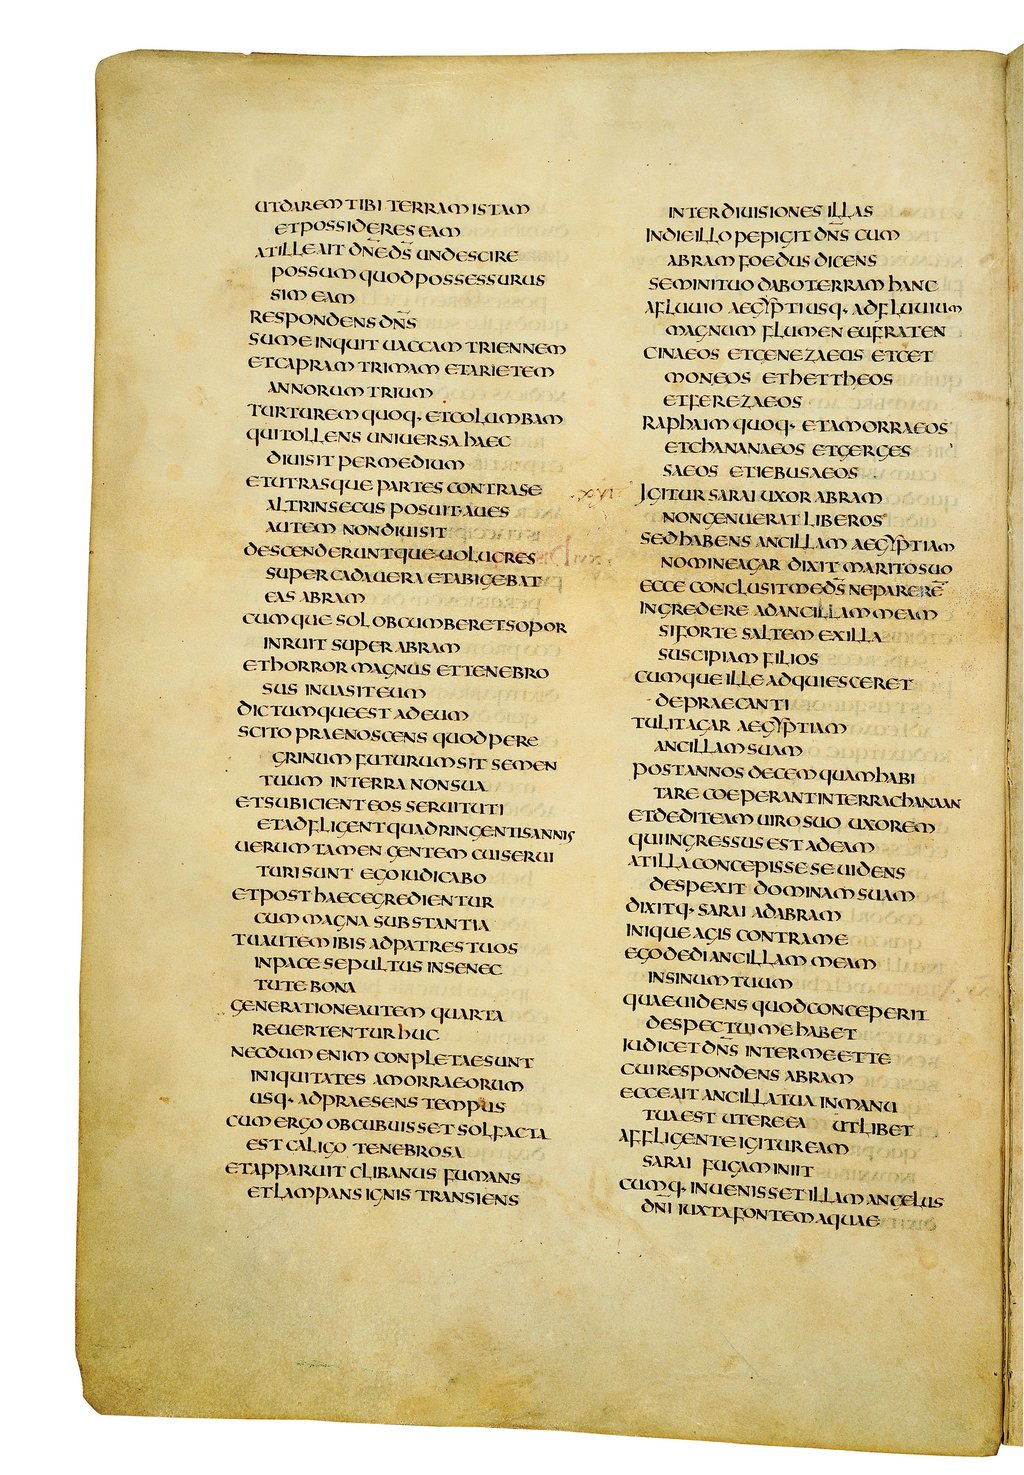 UTDAREM TIBI TERRAM ISTAM
ET POSSIDERES EAM
AT ILLE AIT DN̅E D̅S UNDE SCIRE
POSSUM QUOD POSSESSURUS
SIM EAM
RESPONDENS DN̅S
SUME INQUIT UACCAM TRIENNEM
ET CAPRAM TRIMAM ET ARIETEM
ANNORUM TRIUM
TURTUREM QUOQ· ET COLUMBAM
QUI TOLLENS UNIUERSA HAEC
DIUISIT PER MEDIUM
ET UTRASQUE PARTES CONTRA SE
ALTRINSECUS POSUIT· AUES
AUTEM NON DIUISIT
DESCENDERUNTQUE UOLUCRES
SUPER CADAUERA ET ABIGEBAT
EAS ABRAM
CUMQUE SOL OBCUMBERET SOPOR
INRUIT SUPER ABRAM
ET HORROR MAGNUS ET TENEBRO
SUS INUASIT EUM
DICTUMQUE EST AD EUM
SCITO PRAENOSCENS QUOD PERE
GRINUM FUTURUM SIT SEMEN
TUUM IN TERRA NON SUA
ET SUBICIENT EOS SERUITUTI
ET ADFLIGENT QUADRINGENTIS ANNIS
UERUMTAMEN GENTEM CUI SERUI
TURI SUNT EGO IUDICABO
ET POST HAEC EGREDIENTUR
CUM MAGNA SUBSTANTIA
TU AUTEM IBIS AD PATRES TUOS
IN PACE SEPULTUS IN SENEC
TUTE BONA
GENERATIONE AUTEM QUARTA
REUERTENTUR HUC
NECDUM ENIM CONPLETAE SUNT
INIQUITATES AMORRAEORUM
USQ· AD PRAESENS TEMPUS
CUM ERGO OBCUBUISSET SOL FACTA
EST CALIGO TENEBROSA
ET APPARUIT CLIBANUS FUMANS
ET LAMPANS IGNIS TRANSIENS
INTER DIUISIONES ILLAS
IN DIE ILLO PEPIGIT DN̅S CUM
ABRAM FOEDUS DICENS
SEMINI TUO DABO TERRAM HANC
A FLUUIO AEGYPTI USQ· AD FLUUIUM
MAGNUM FLUMEN EUFRATEN
CINAEOS ET CENEZAEUS ET CET
MONEOS ET HETTHEOS
ET FEREZAEOS
RAPHAIM QUOQ· ET AMORRAEOS
ET CHANANAEOS ET GERGES
SAEOS ET IEBUSAEOS
IGITUR SARAI UXOR ABRAM
NON GENUERAT LIBEROS
SED HABENS ANCILLAM AEGYPTIAM
NOMINE AGAR DIXIT MARITO SUO
ECCE CONCLUSIT ME D̅S NE PARERE̅
INGREDERE AD ANCILLAM MEAM
SI FORTE SALTEM EX ILLA
SUSCIPIAM FILIOS
CUMQUE ILLE ADQUIESCERET
DEPRAECANTI
TULIT AGAR AEGYPTIAM
ANCILLAM SUAM
POST ANNOS DECEM QUAM HABI
TARE COEPERANT IN TERRA CHANAAN
ET DEDIT EAM UIRO SUO UXOREM
QUI INGRESSUS EST AD EAM
AT ILLA CONCEPISSE SE UIDENS
DESPEXIT DOMINAM SUAM
DIXITQ· SARAI AD ABRAM
INIQUE AGIS CONTRA ME
EGO DEDI ANCILLAM MEAM
IN SINUM TUUM
QUAE UIDENS QUOD CONCEPERIT
DESPECTUI ME HABET
IUDICET DN̅S INTER ME ET TE
CUI RESPONDENS ABRAM
ECCE AIT ANCILLA TUA IN MANU
TUA EST UTERE EA UT LIBET
AFFLIGENTE IGITUR EAM
SARAI FUGAM INIIT
CUMQ· INUENISSET ILLAM ANGELUS
DN̅I IUXTA FONTEM AQUAE